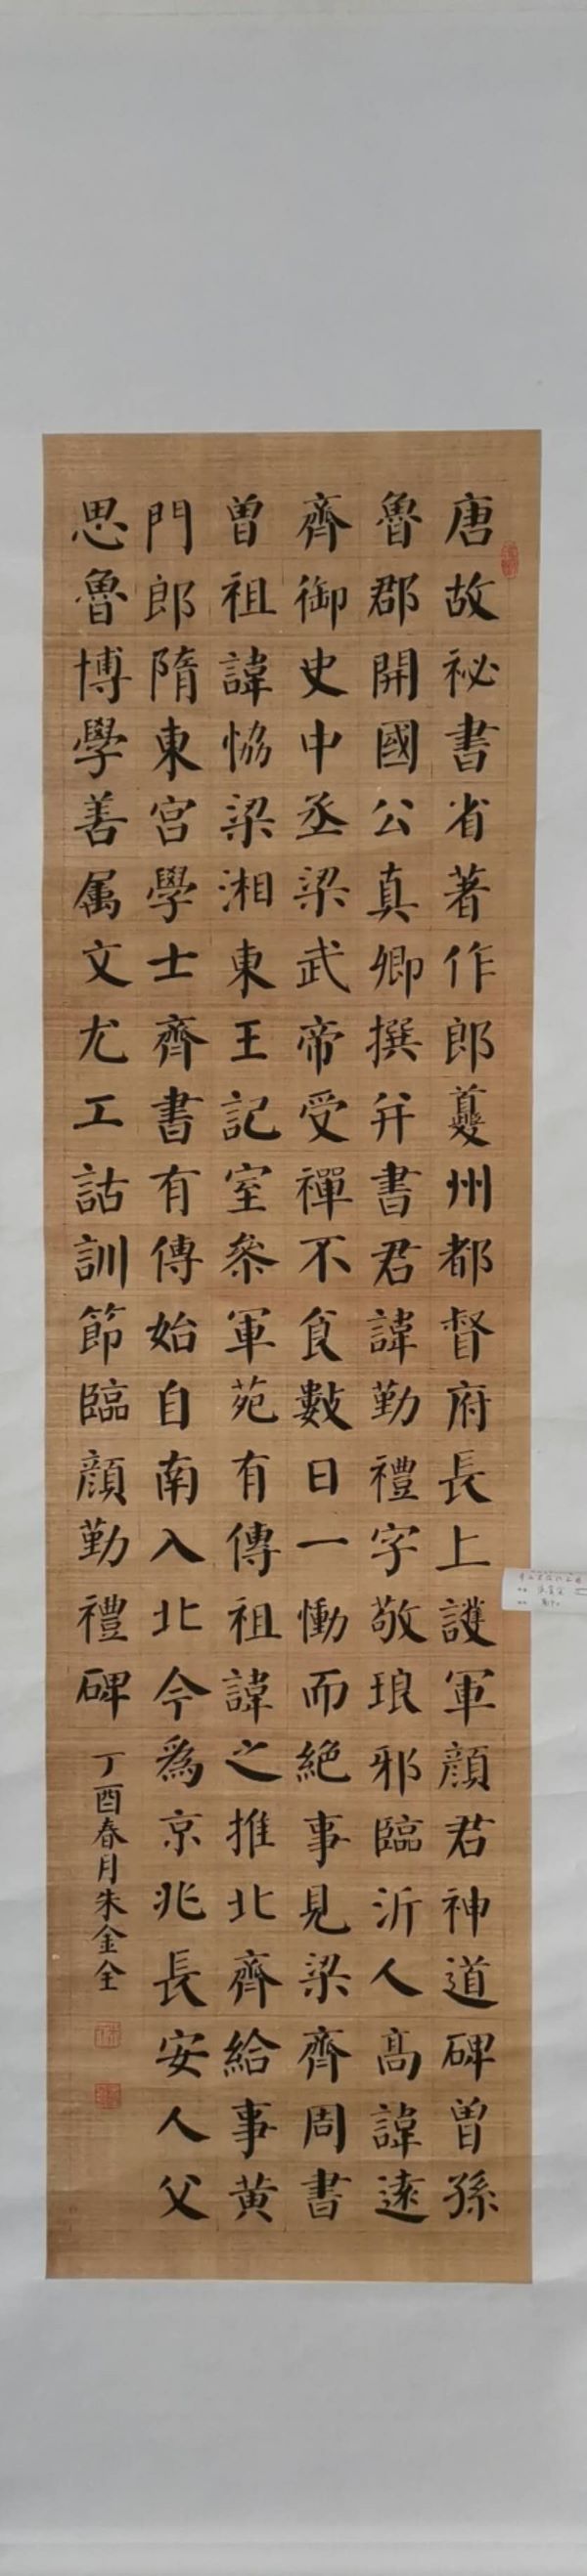 唐故祕書省著作郎夔州都督府長上護軍顔君神道碑曽孫
魯郡開國公真卿撰并書君諱勤禮字敬琅邪臨沂人髙諱逺
齊御史中丞梁武帝受禪不食數日一慟而絶事見梁齊周書
曽祖諱恊梁湘東王記室叅軍苑有傳祖諱之推北齊給事黄
門郎隋東宫學士齊書有傳始自南入北今為京兆長安人父
思魯博學善属文尤工詁訓節臨顔勤禮碑
丁酉春月朱金全